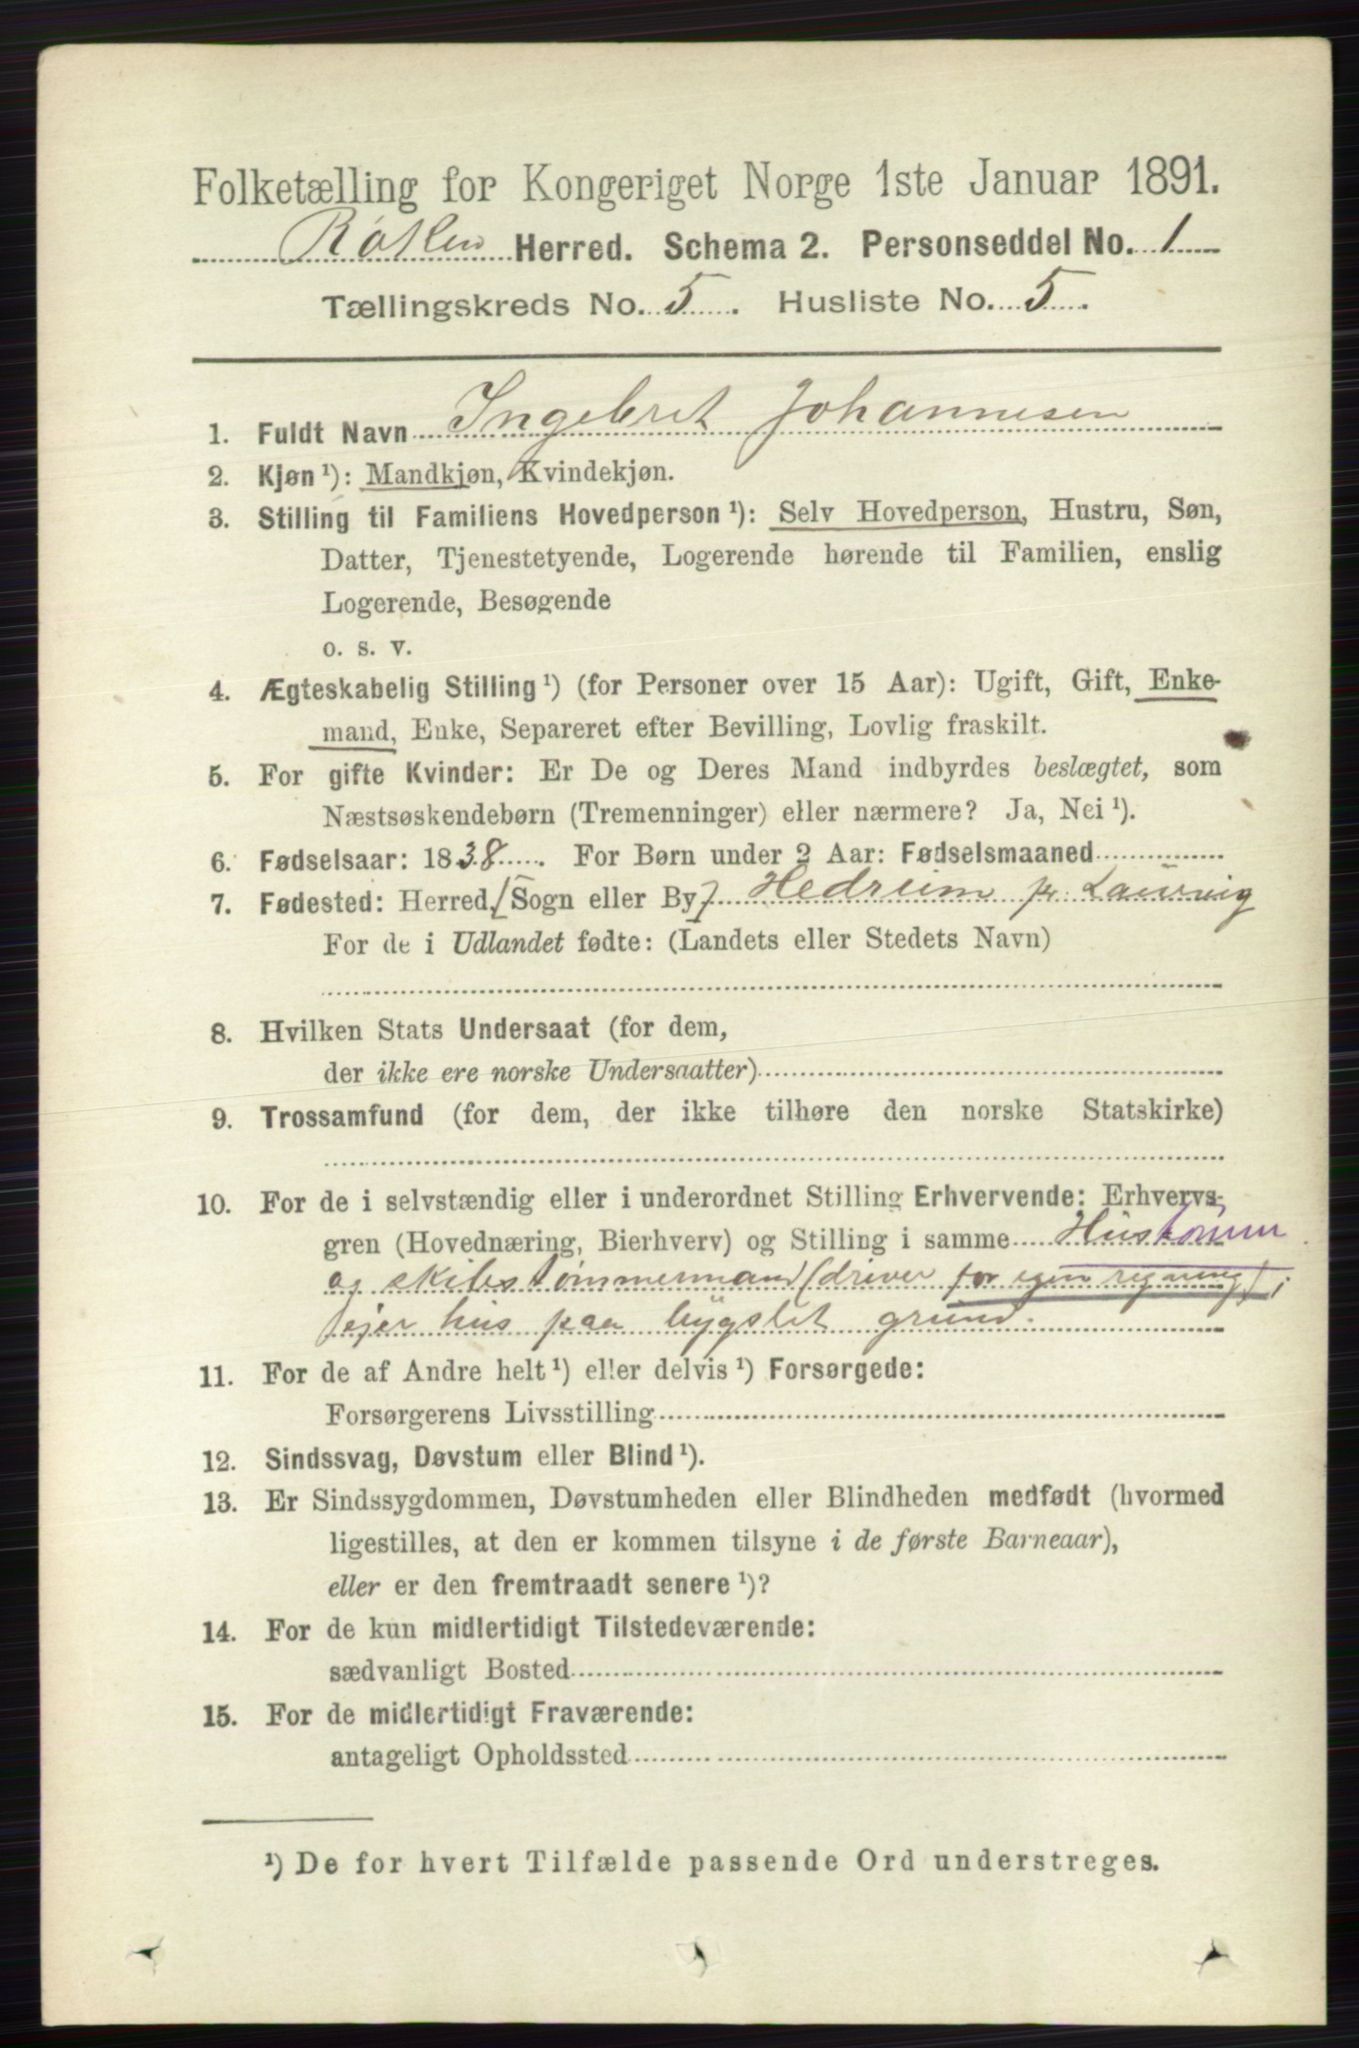 Folketælling for Kongeriget Norge 1ste Januar 1891.
Røken Herred. Schema 2. Personseddel No. 1
Tællingskreds No. 5. Husliste No. 5.
1. Fuldt Navn Ingebret Johannesen
2. Kjøn ¹): Mandkjøn, Kvindekjøn.
3. Stilling til Familiens Hovedperson ¹): Selv Hovedperson, Hustru, Søn,
Datter, Tjenestetyende, Logerende hørende til Familien, enslig
Logerende, Besøgende
o. s. v.
4. Ægteskabelig Stilling ¹) (for Personer over 15 Aar): Ugift, Gift, Enke-
mand, Enke, Separeret efter Bevilling, Lovlig fraskilt.
5. For gifte Kvinder: Er De og Deres Mand indbyrdes beslægtet, som
Næstsøskendebørn (Tremenninger) eller nærmere? Ja, Nei ¹).
6. Fødselsaar: 1838. For Børn under 2 Aar: Fødselsmaaned
7. Fødested: Herred, [Sogn eller By] Hedreim pr. Laurvig
For de i Udlandet fødte: (Landets eller Stedets Navn)
8. Hvilken Stats Undersaat (for dem,
der ikke ere norske Undersaatter)
9. Trossamfund (for dem, der ikke tilhøre den norske Statskirke)
10. For de i selvstændig eller i underordnet Stilling Erhvervende: Erhvervs-
gren (Hovednæring, Bierhverv) og Stilling i samme Hustømm
og skibstømmermand (driver for egen regning);
ejer hus paa bygslet grund.
11. For de af Andre helt ¹) eller delvis ¹) Forsørgede:
Forsørgerens Livsstilling
12. Sindssvag, Døvstum eller Blind ¹).
13. Er Sindssygdommen, Døvstumheden eller Blindheden medfødt (hvormed
ligestilles, at den er kommen tilsyne i de første Barneaar),
eller er den fremtraadt senere ¹)?
14. For de kun midlertidigt Tilstedeværende:
sædvanligt Bosted
15. For de midlertidigt Fraværende:
antageligt Opholdssted
¹) De for hvert Tilfælde passende Ord understreges.